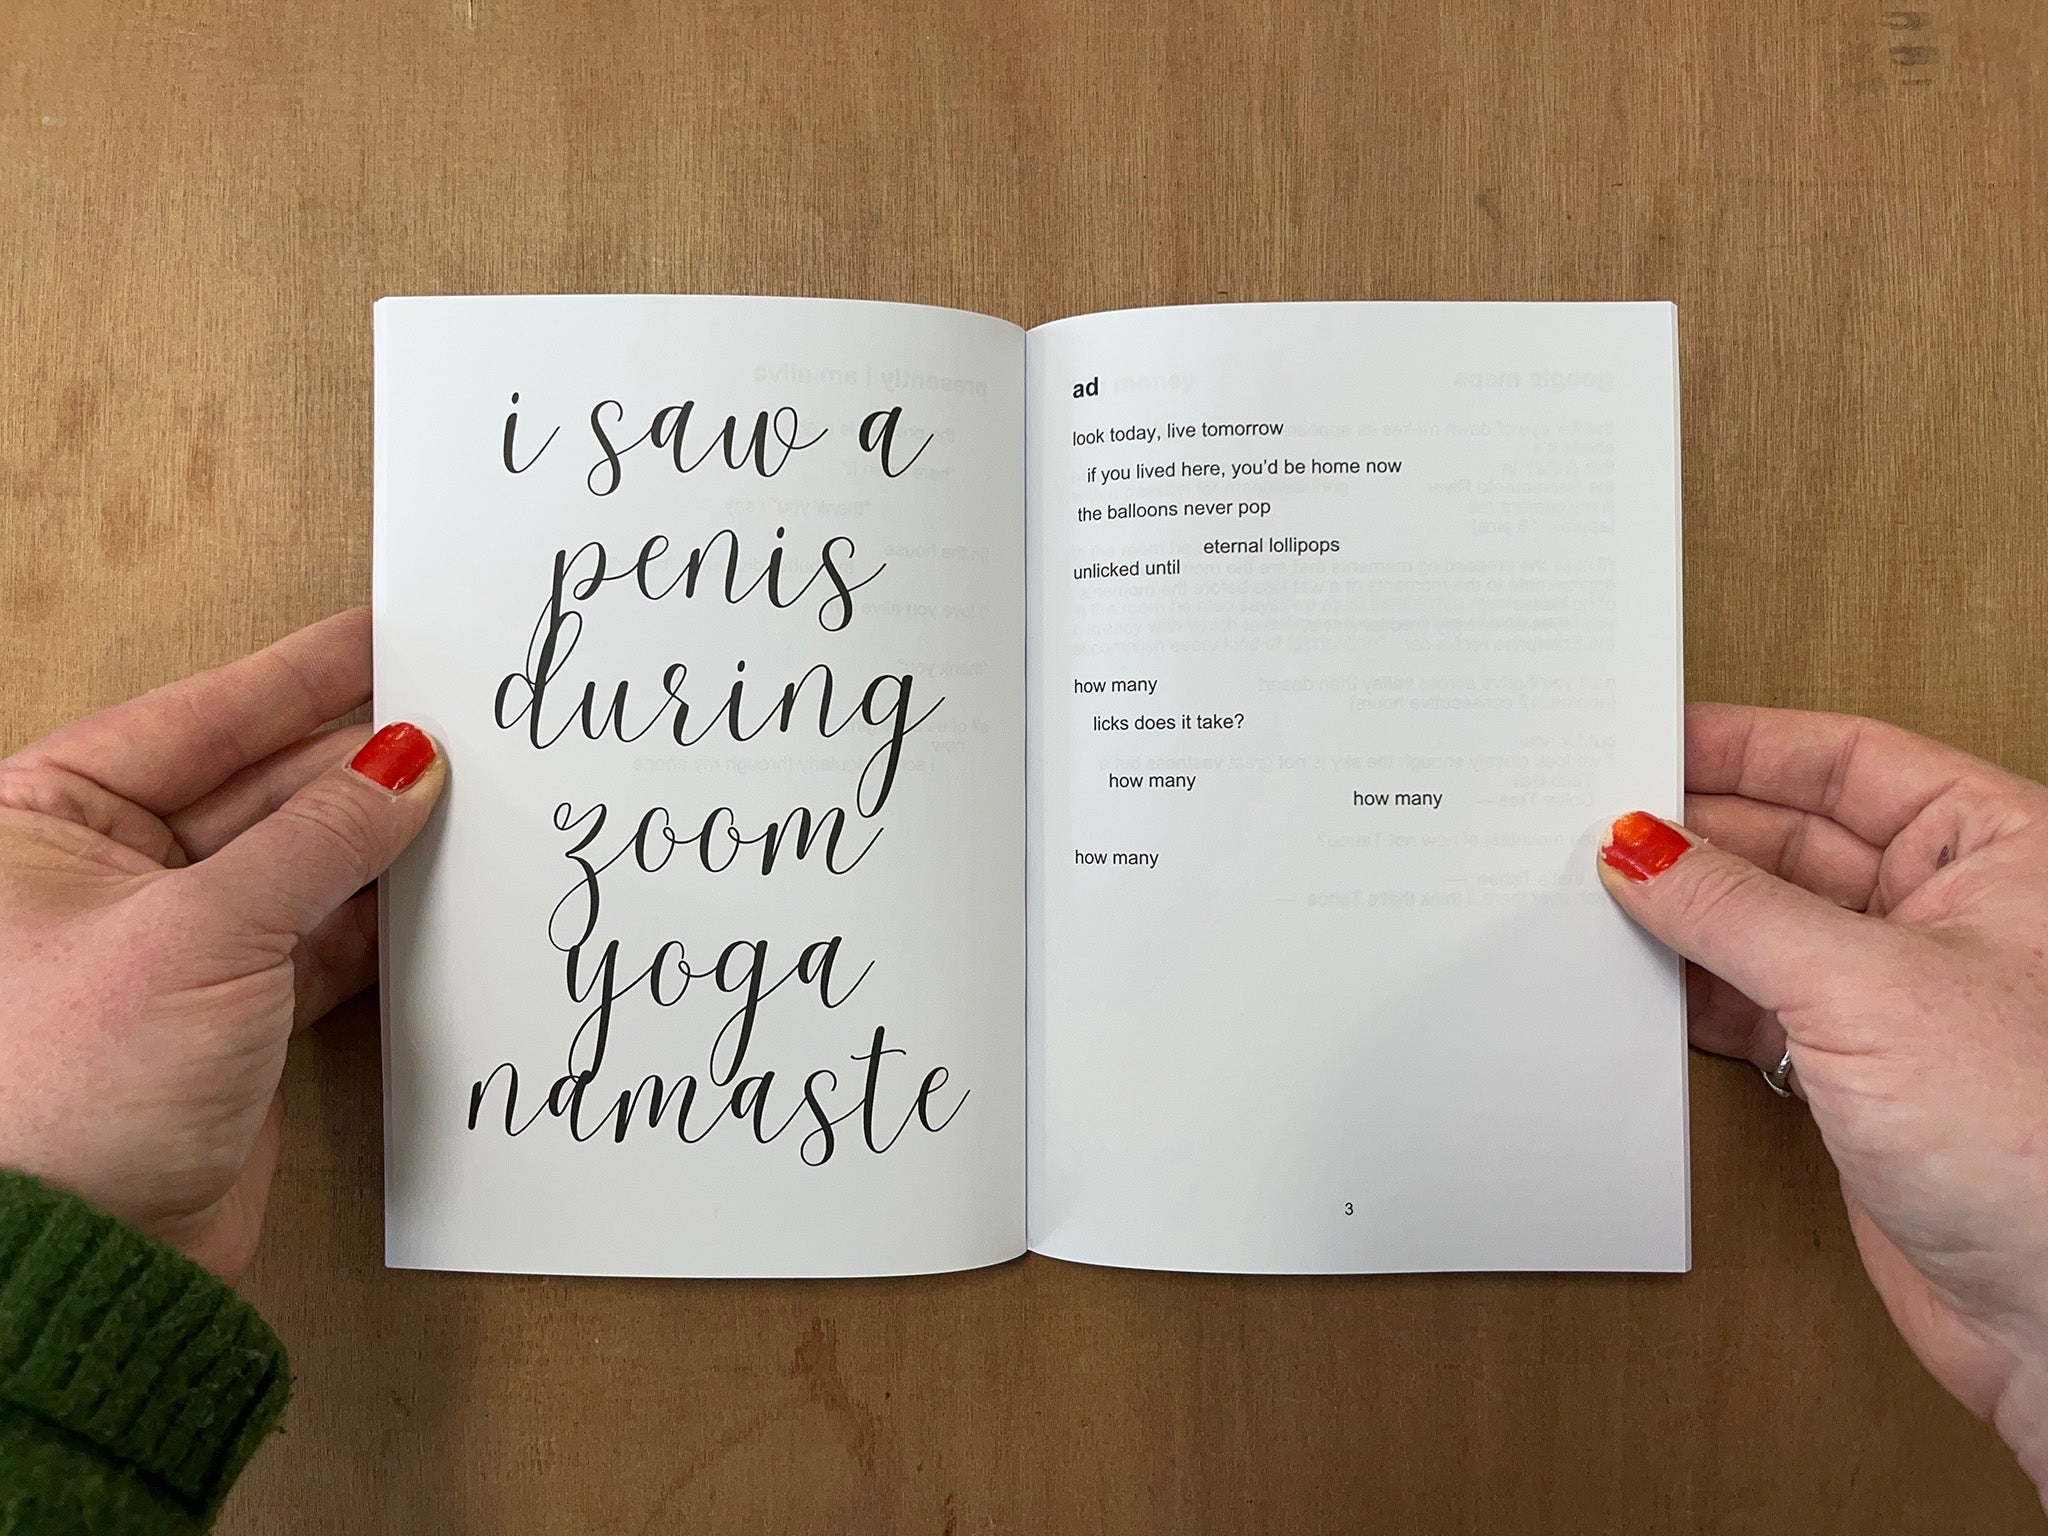 i saw a
penis
during
zoom
yoga
namaste
ad
look today, live tomorrow
if you lived here, you'd be home now
the balloons never pop
eternal lollipops
unlicked until
how many
licks does it take?
how many
how many
how many
3